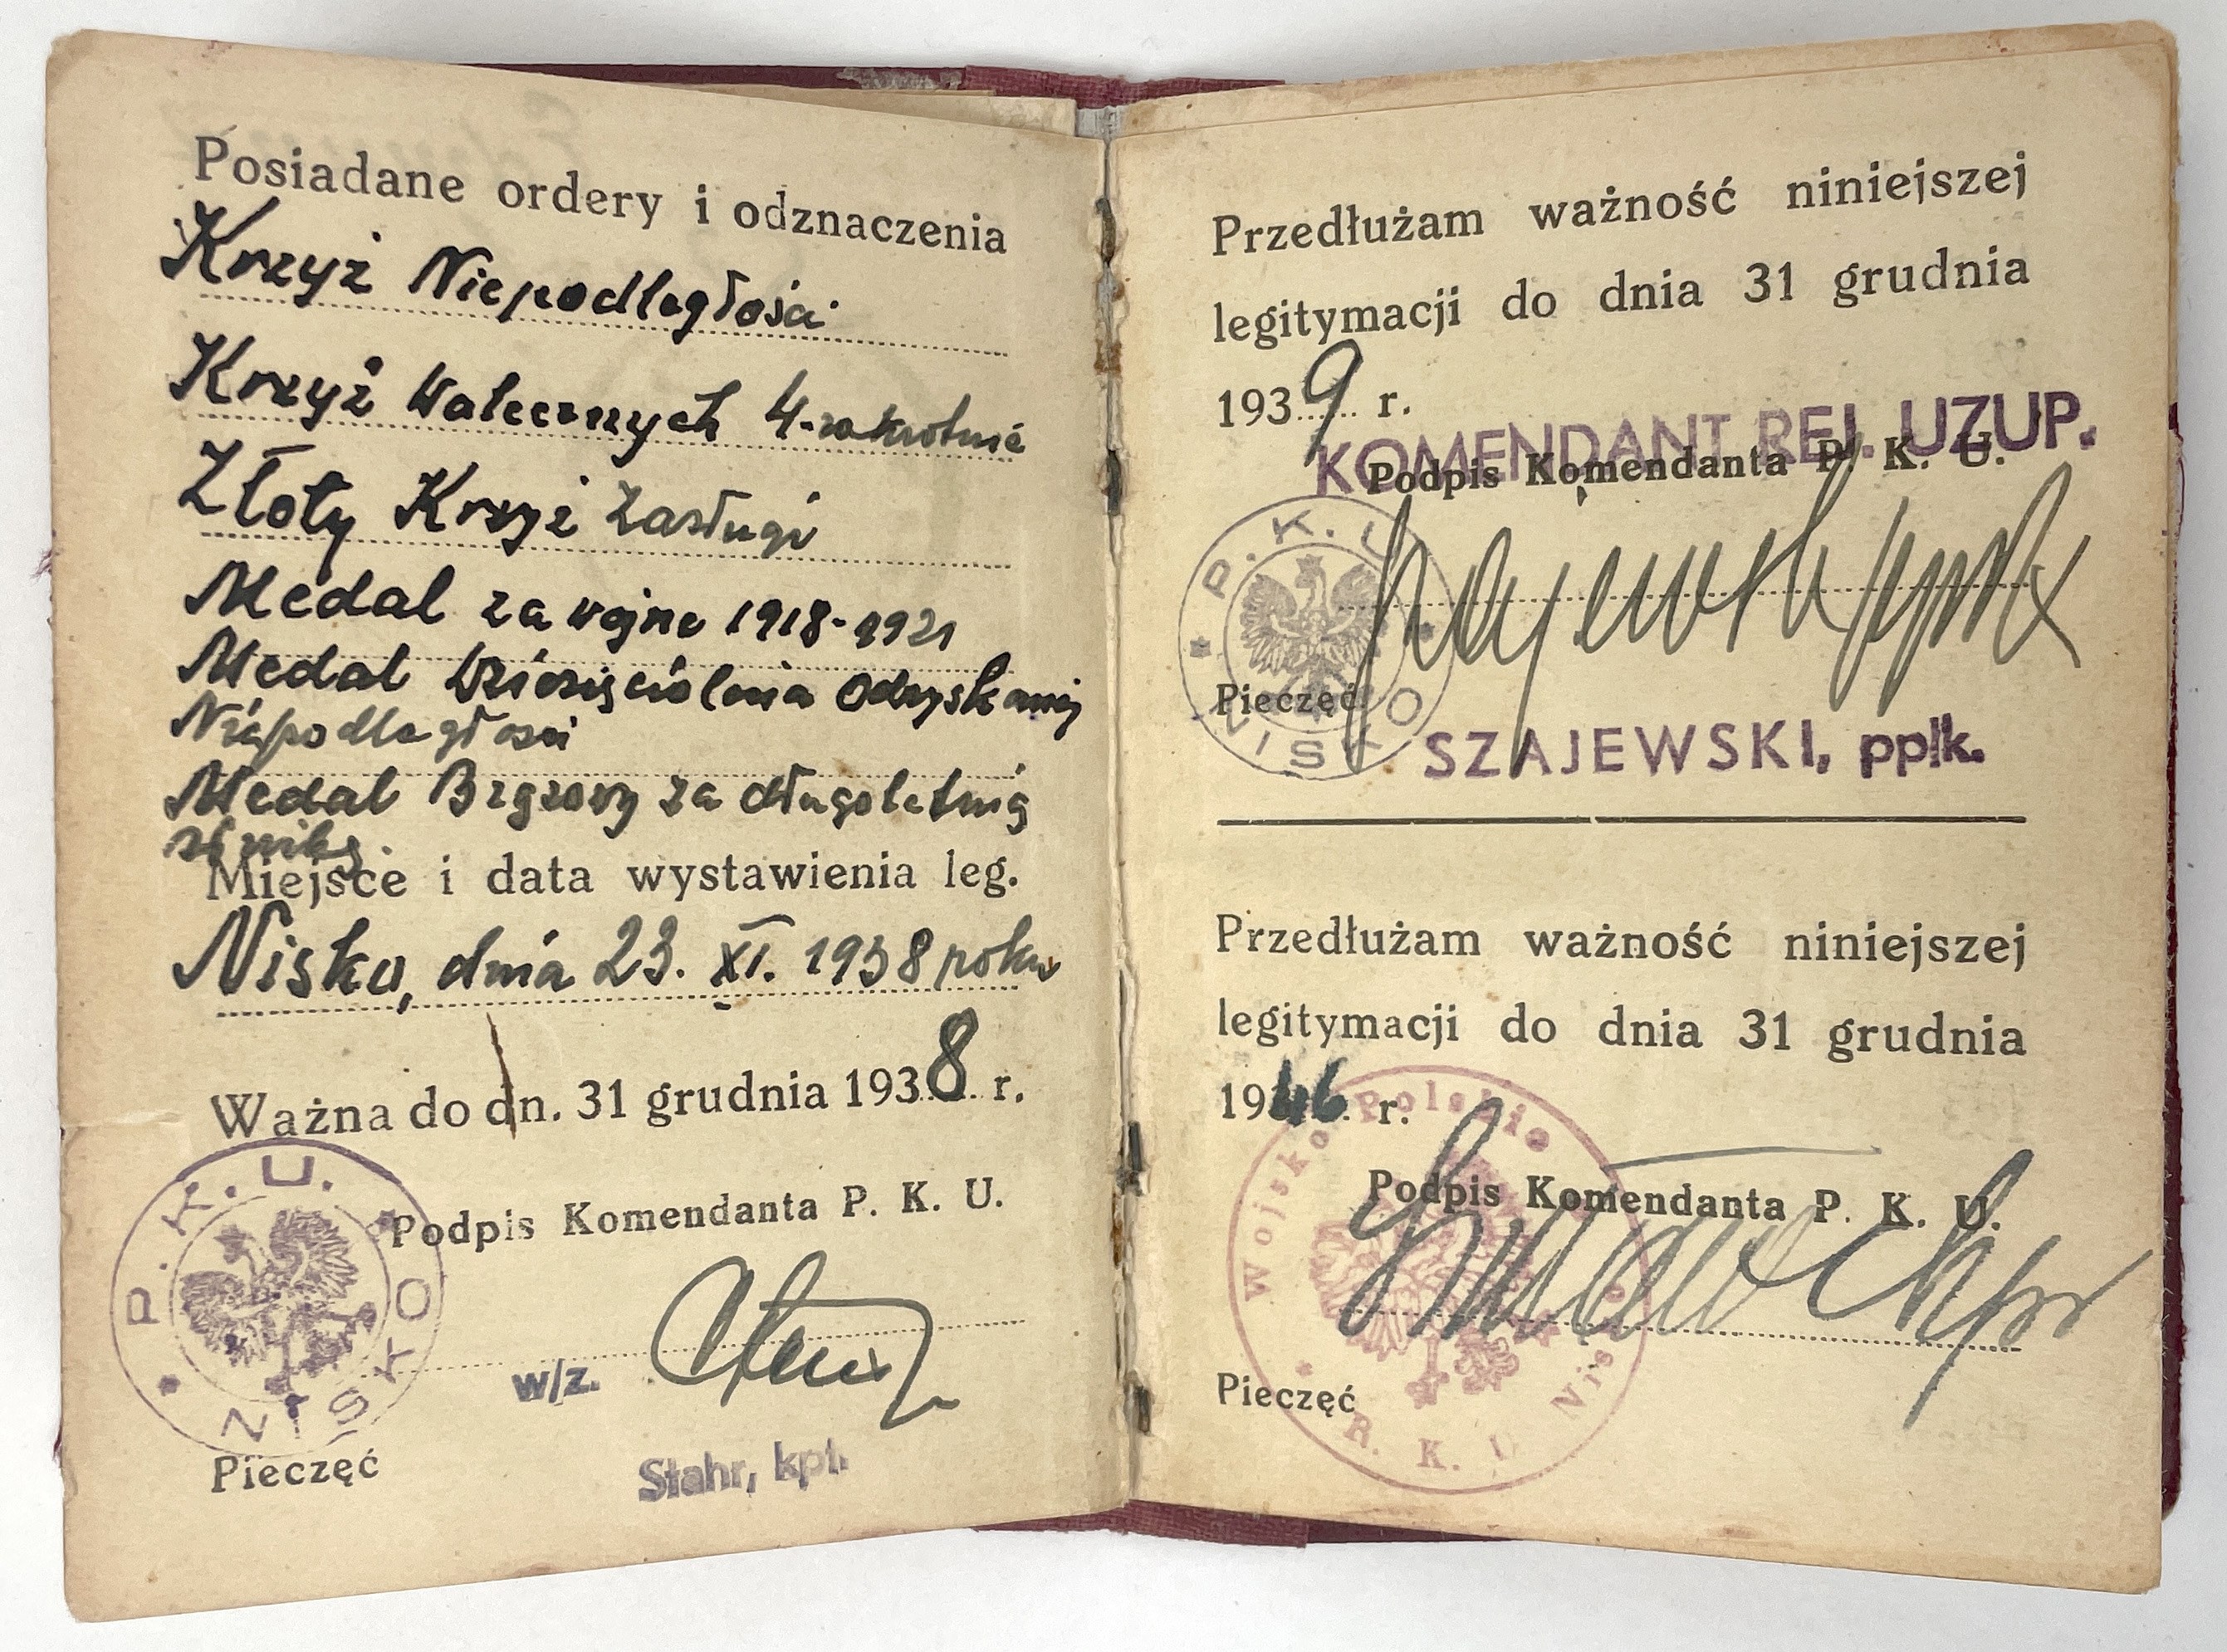 Posiadane ordery i odznaczenia
Krzyż Niepodległości
Krzyż Walecznych 4-rokrotnie
Złoty Krzyż Zasługi
Medal za wojnę 1918-1921
Medal Dziesięciolecia Odzyskanej
Niepodległości
Medal Brązowy za długoletnią
służbę.
Miejsce i data wystawienia leg.
Nisko, dnia 23. XI. 1938 roku
Ważna do dn. 31 grudnia 1938 r.
P. K. U. NISKO
Podpis Komendanta P. K. U.
w/z.
Stahr, kpt.
Pieczęć
Przedłużam ważność niniejszej
legitymacji do dnia 31 grudnia
1939 r.
KOMENDANT REJ. UZUP.
Podpis Komendanta P. K. U.
P. K. U. NISKO
Szajewski ppłk
Pieczęć
SZAJEWSKI, ppłk.
Przedłużam ważność niniejszej
legitymacji do dnia 31 grudnia
1946 r.
Wojsko Polskie
Podpis Komendanta P. K. U.
Pieczęć
R. K. U. Nisko